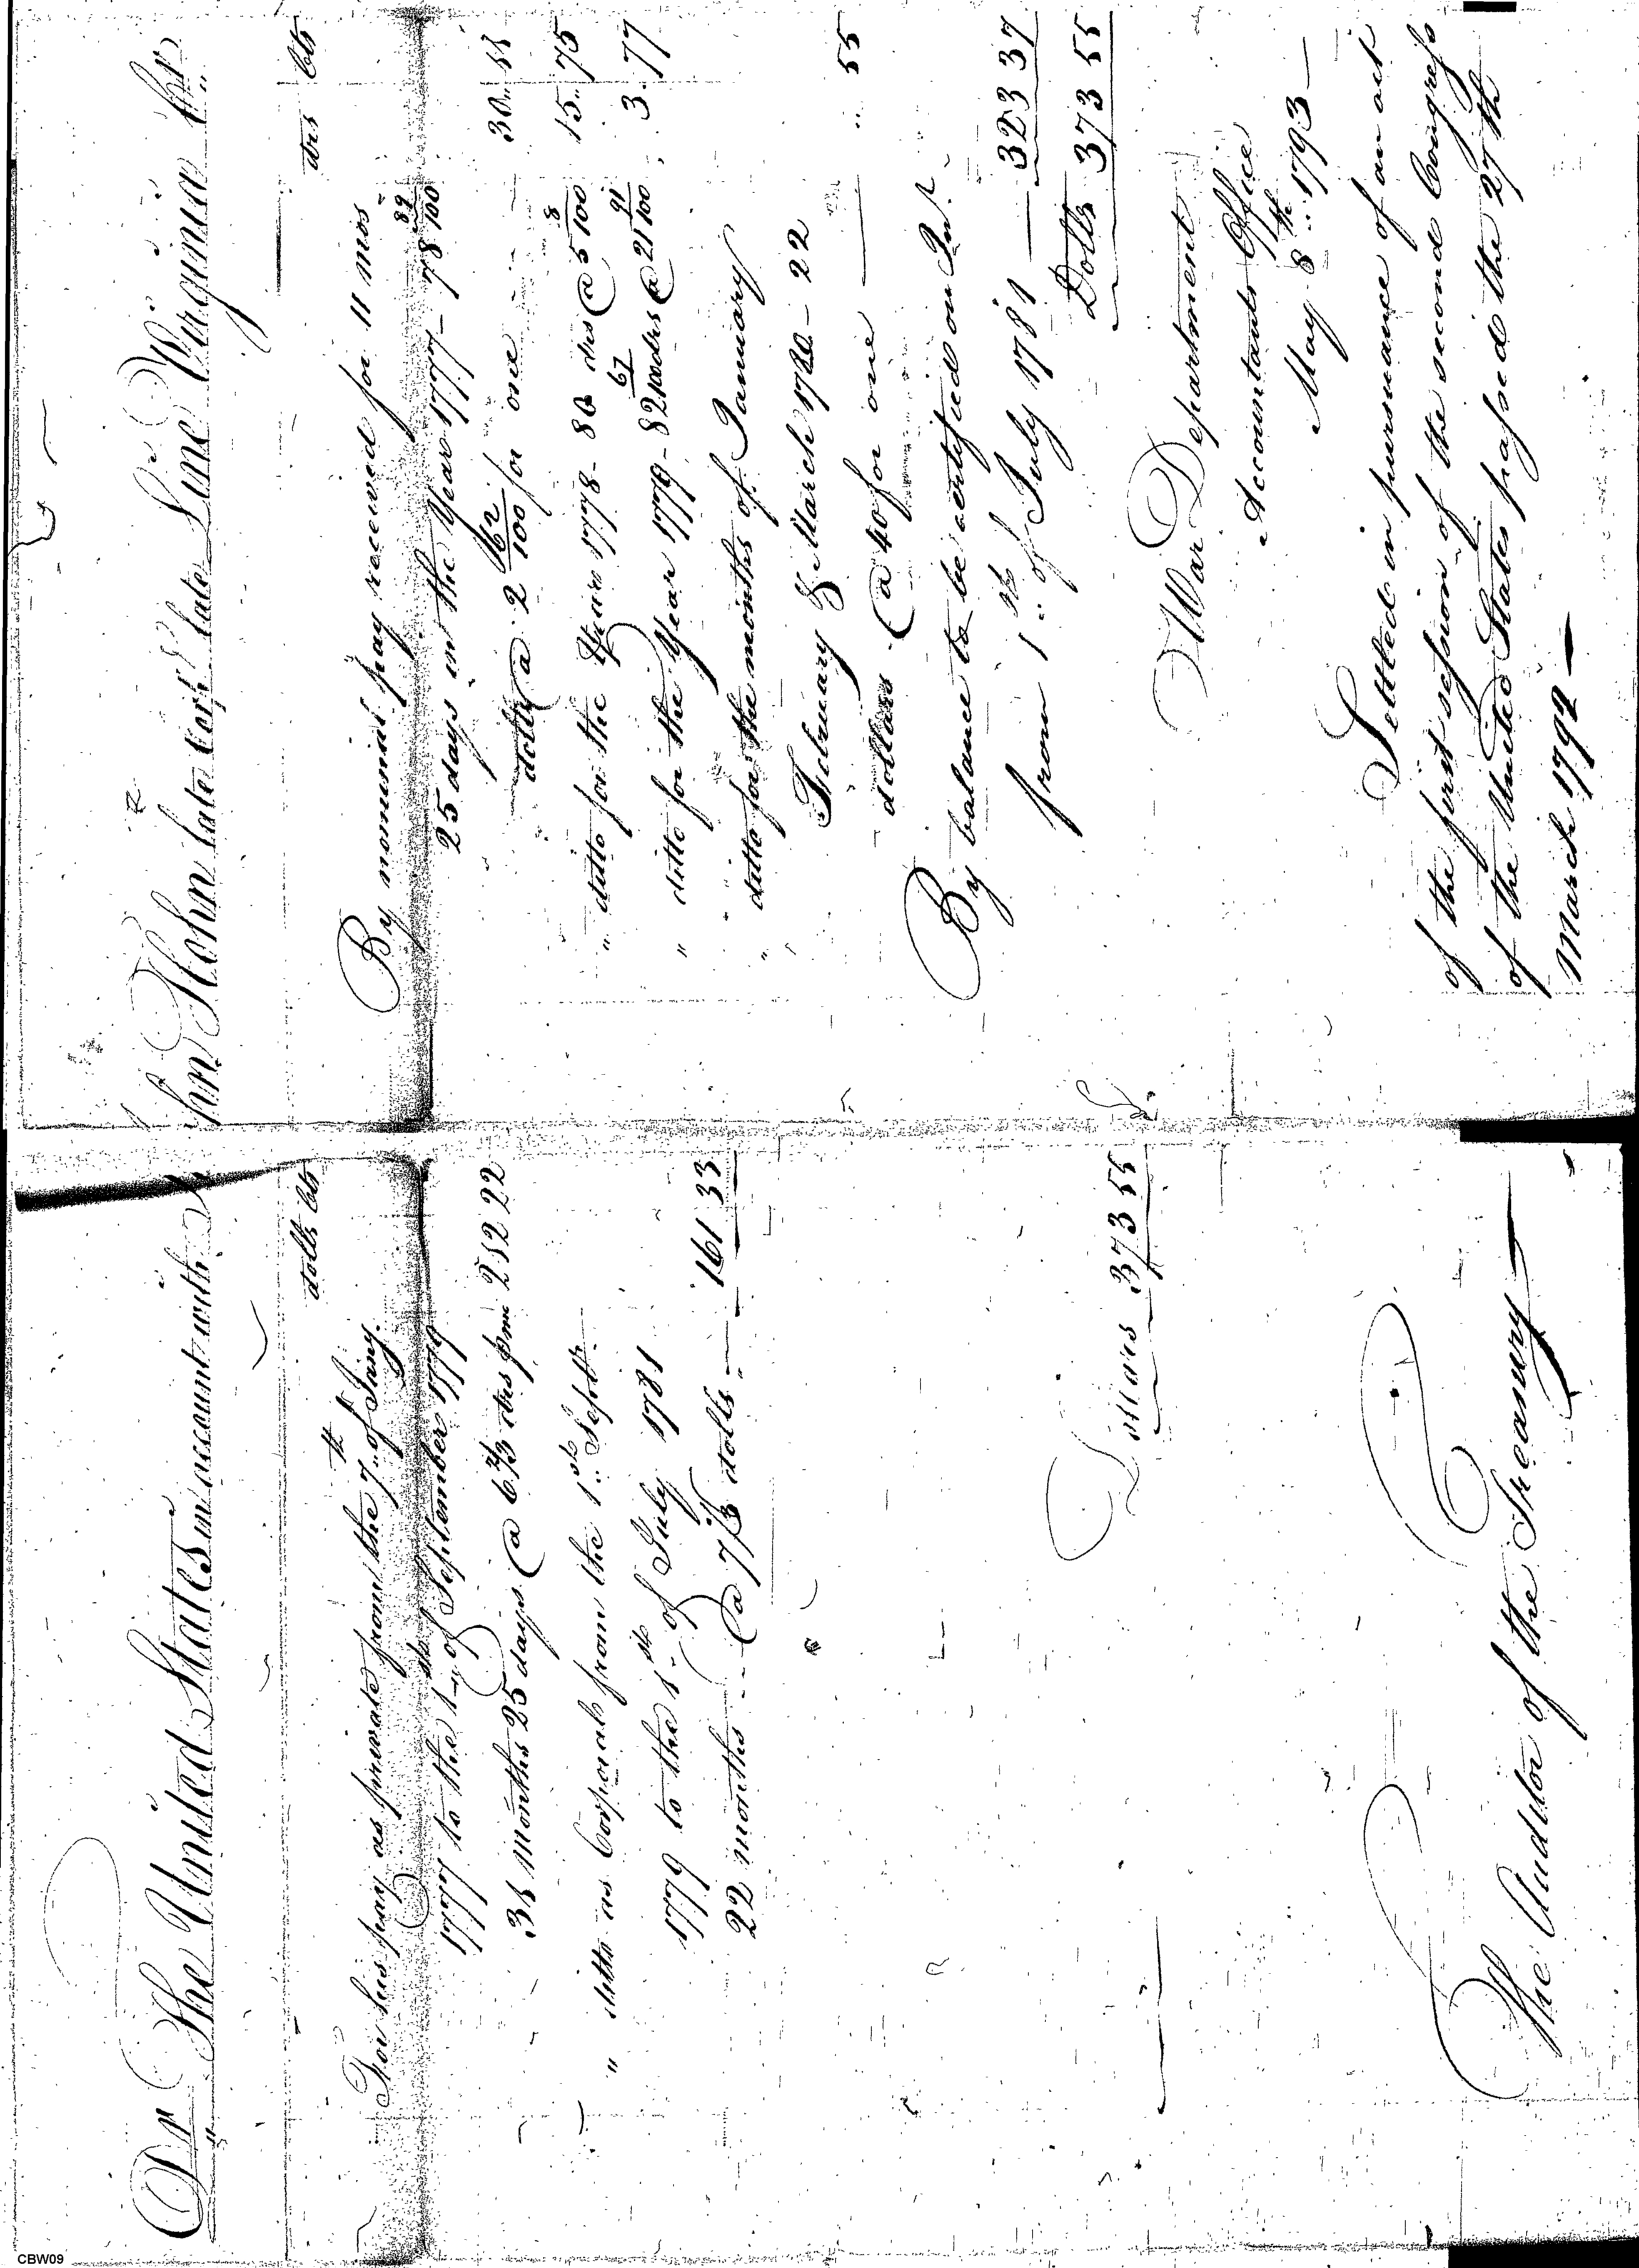 Dr The United States in account with John Hohn late Corpl late Line Virginia Cr
dolls Cts
For his pay as private from the 7th of Jany.
1777 to the 1st of September 1779
31 months 25 days @ 6 2/3 drs pm 212 22
" ditto as Corporal from the 1st Septr.
1779 to the 1st of July 1781
22 months @ 7 1/3 dolls — 161 33
Dollars 373 55
The Auditor of the Treasury
drs Cts
By nominal pay received for 11 mos
25 days in the Year 1777 — 78 89/100
dolls @ 2 62/100 for one 30 11
" ditto for the Year 1778 - 80 drs @ 5 8/100 15 75
" ditto for the Year 1779 - 82 67/100 drs @ 21 91/100 3 77
" ditto for the months of January
February & March 1780 — 22
dollars @ 40 for one — " 55
By balance to be certified on Int.
from 1st of July 1781 — 323 37
Dolls 373 55
War Department
Accountants Office
May 8th 1793 —
Settled in pursuance of an act
of the first session of the second Congress
of the United States passed the 27th
March 1792 —
CBW09